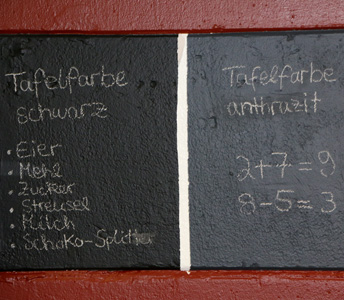 Tafelfarbe
schwarz
• Eier
• Mehl
• Zucker
• Streusel
• Milch
• Schoko-Splitter
Tafelfarbe
anthrazit
2+7=9
8-5=3